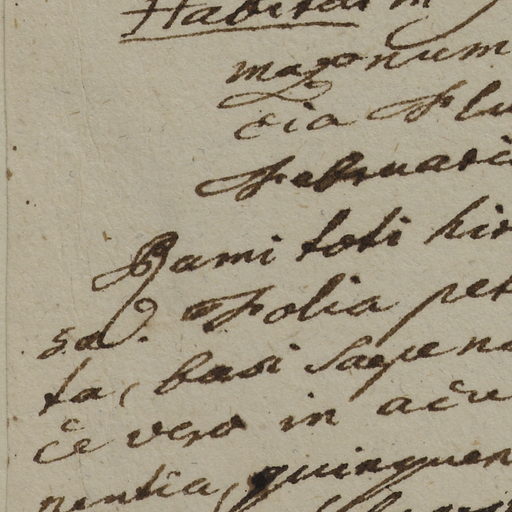 Habitat in
magnum
cia Flu
Februari
Rami toti hir
sa. Folia pet
ta, basi saepe
ce vero in acu
nentia, quinquen